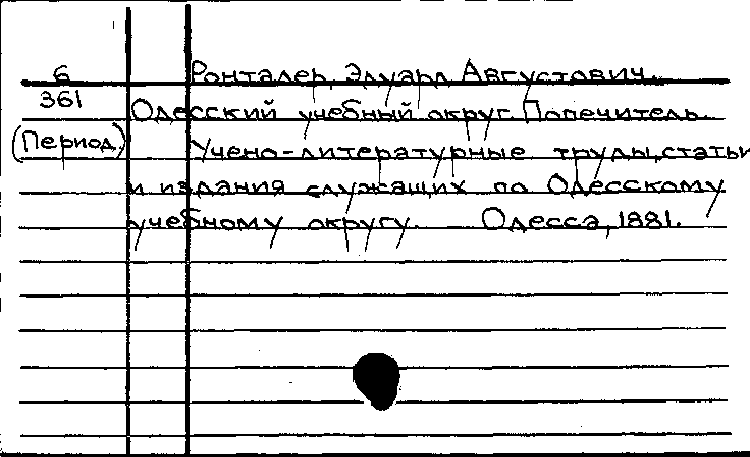 6 Ронталер, Эдуард Августович.
361 Одесский учебный округ. Попечитель.
(Период.) Учено-литературные труды, статьи
и издания служащих по Одесскому
учебному округу. Одесса, 1881.